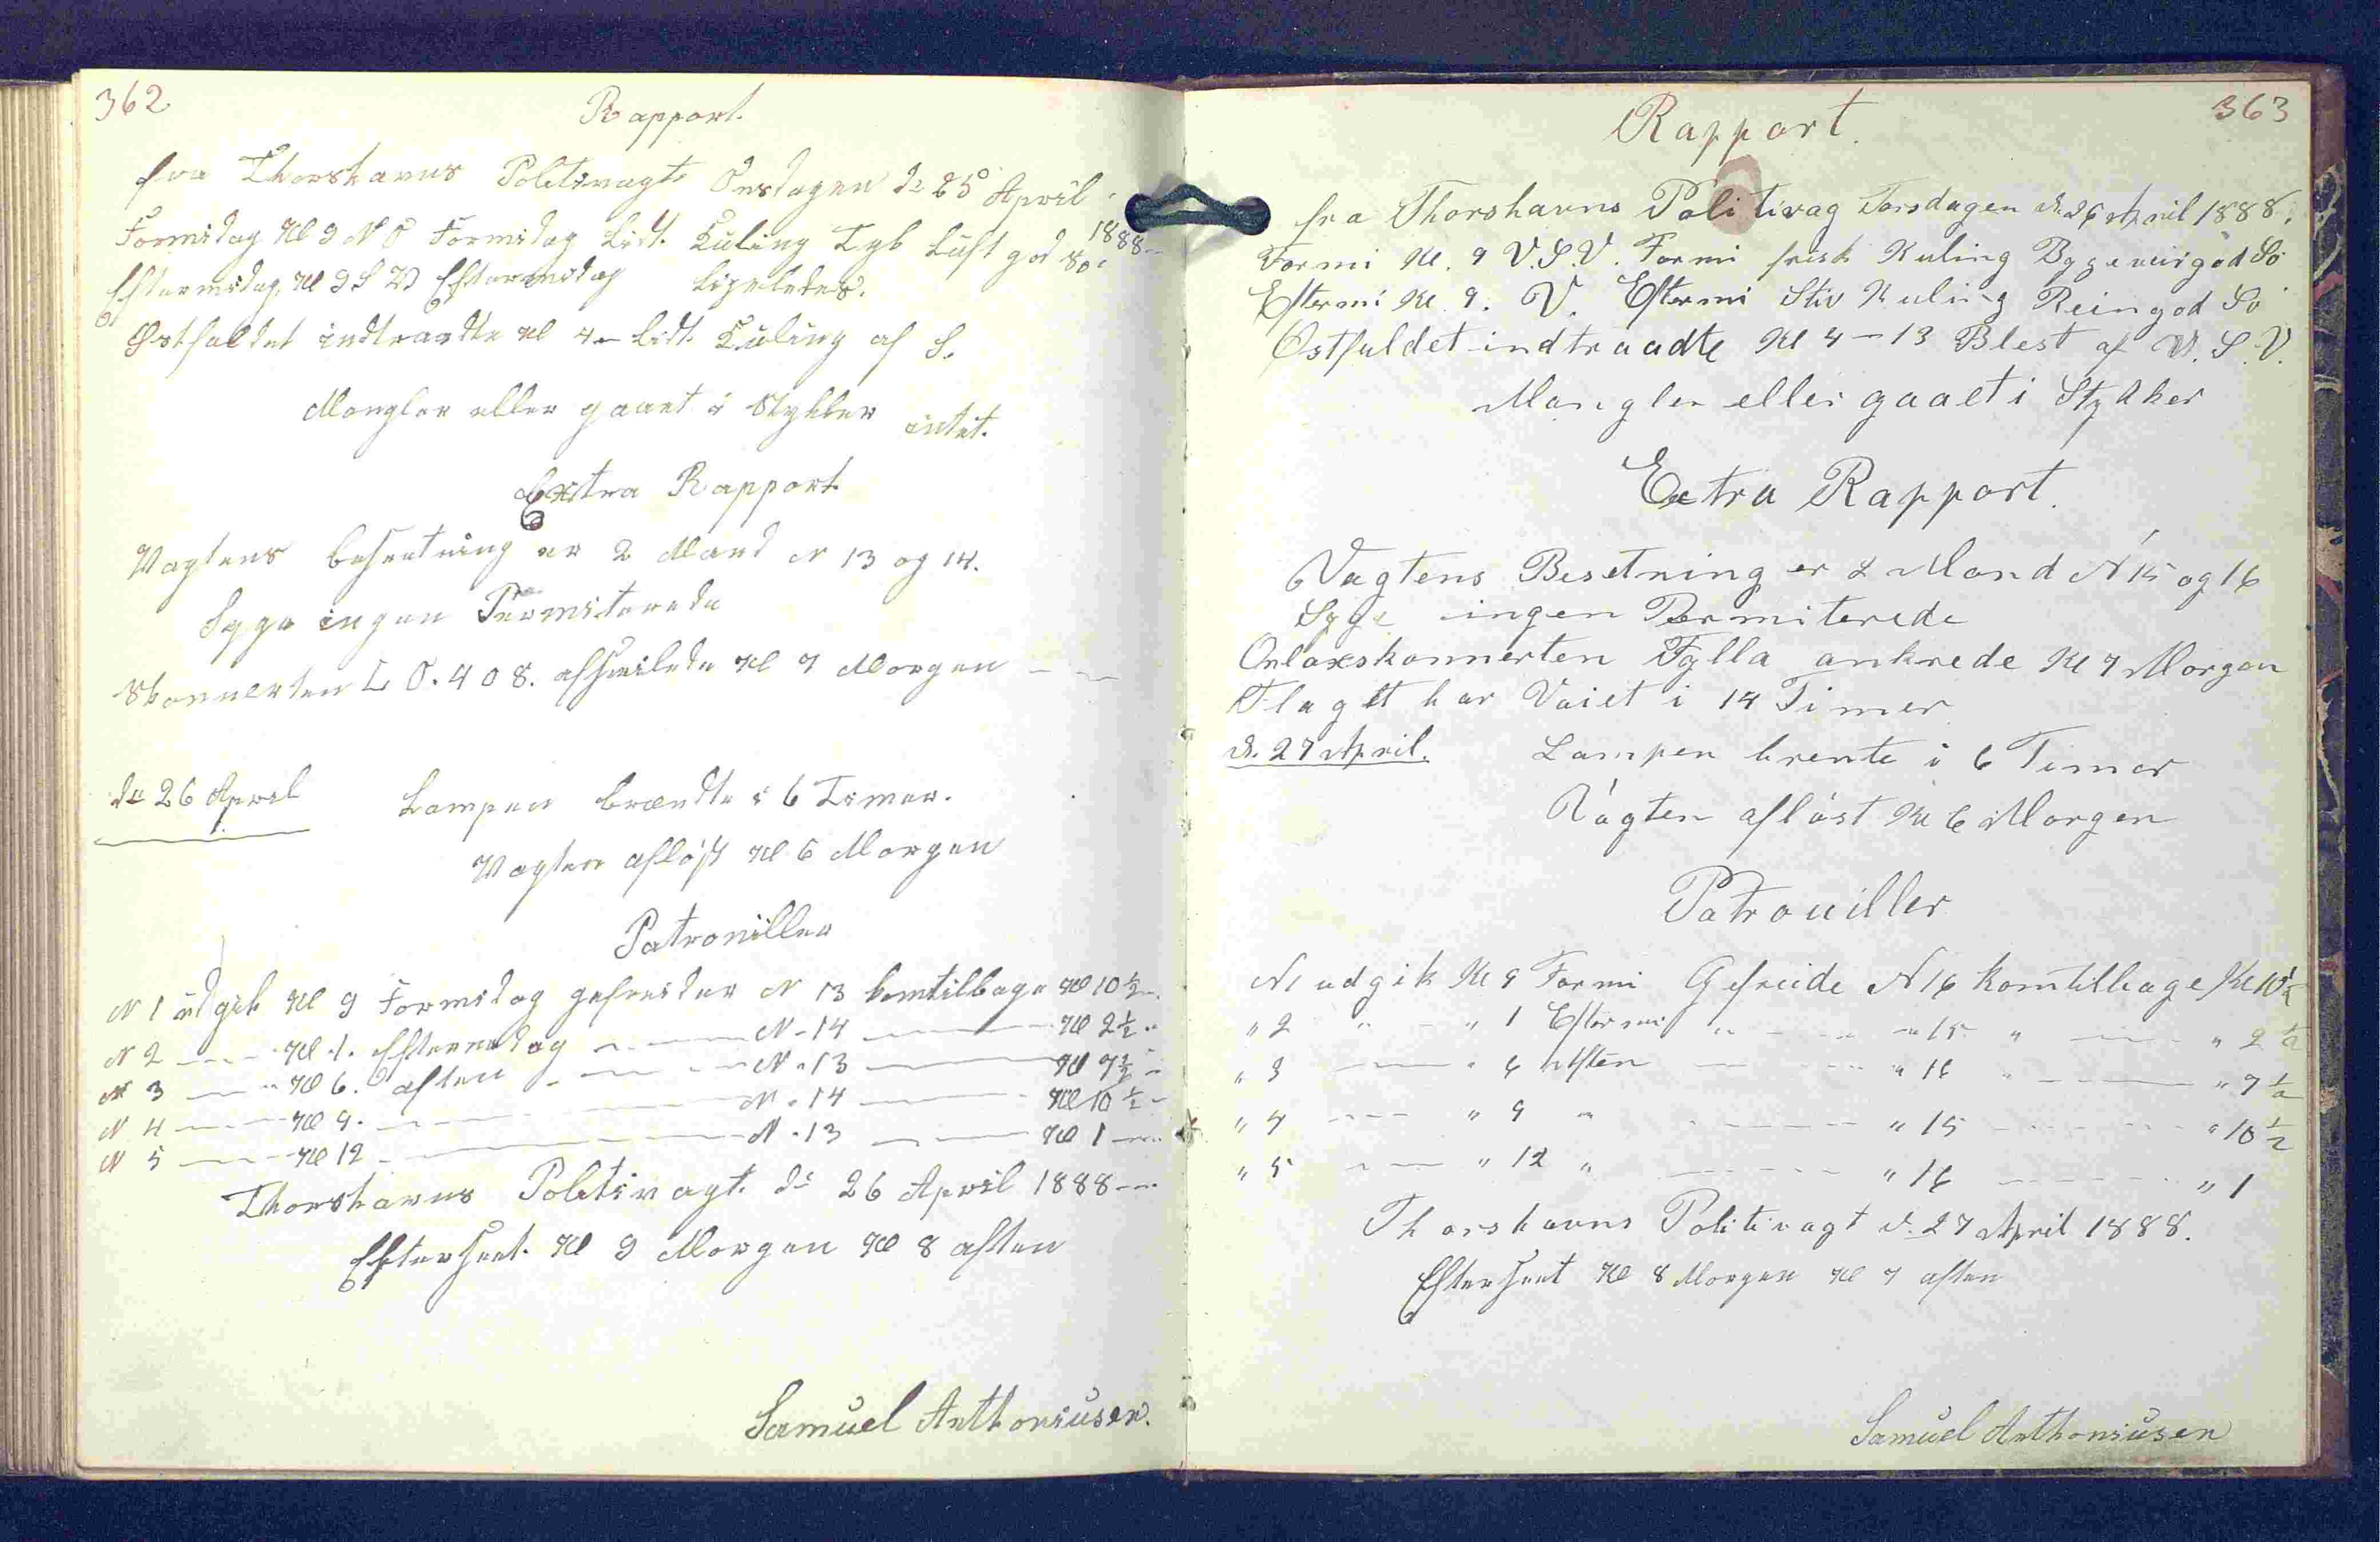 362
Rapport.
fra Thorshavns Politivagt Onsdagen d: 25 April
1888
Formidag Kl 9 N O Formidag Lidt Kuling Tyk Luft god So
Eftermidag Kl 9 S V Eftermidag ligeledes.
Østfaldet indtraadte Kl 4 Lidt Kuling af S.
Mangler eller gaaet i Stykker intet.
Extra Rapport
Vagtens besætning er 2 Mand N 13 og 14.
Syge ingen Permiterede
Skonnerten L O. 408. afseilede Kl 7 Morgen
de 26 April Lampen brændte i 6 Timer.
Vagten afløst Kl 6 Morgen
Patrouiller
N 1 udgik Kl 9 Formidag gefreider N 13 komtilbage Kl 10 ½
N 2 — Kl 1. Eftermidag — N - 14 — Kl 2 ½
N 3 — Kl 6. aften — N - 13 — Kl 7 ½
N 4 — Kl 9. — N - 14 — Kl 10 ½
N 5 — Kl 12 — N - 13 — Kl 1
Thorshavns Politivagt d: 26 April 1888
Efterseet Kl 9 Morgen Kl 8 aften
Samuel Anthoniusen.
363
Rapport.
fra Thorshavns Politivag Torsdagen d. 26 April 1888.
Formi Kl. 9 V.S.V. Formi frisk Kuling god So
Eftermi Kl. 9. V. Eftermi Stiv Kuling Rein god So
Ostfuldet indtraadte Kl 4 - 13 Blest af V. S. V.
Mangler eller gaaet i Stykker
Extra Rapport.
Vagtens Besetning er 2 Mand N 15 og 16
Syge ingen Permiterede
Orloxskonnerten Fylla ankrede Kl 7 Morgen
Flaget har Vaiet i 14 Timer
d. 27 April. Lampen brente i 6 Timer
Vagten afløst Kl 6 Morgen
Patrouiller
N1 udgik Kl 9 Formi Gefreide N 16 komtilbage Kl 10 ½
" 2 " - " 1 Eftermi " - " 15 " — " 2 ½
" 3 — " 6 Aften — " 16 " — " 7 ½
" 4 — " 9 " — " 15 — " 10 ½
" 5 — " 12 " — " 16 — " 1
Thorshavns Politivagt d. 27 April 1888.
Efterseet Kl 8 Morgen Kl 7 aften
Samuel Anthoniusen